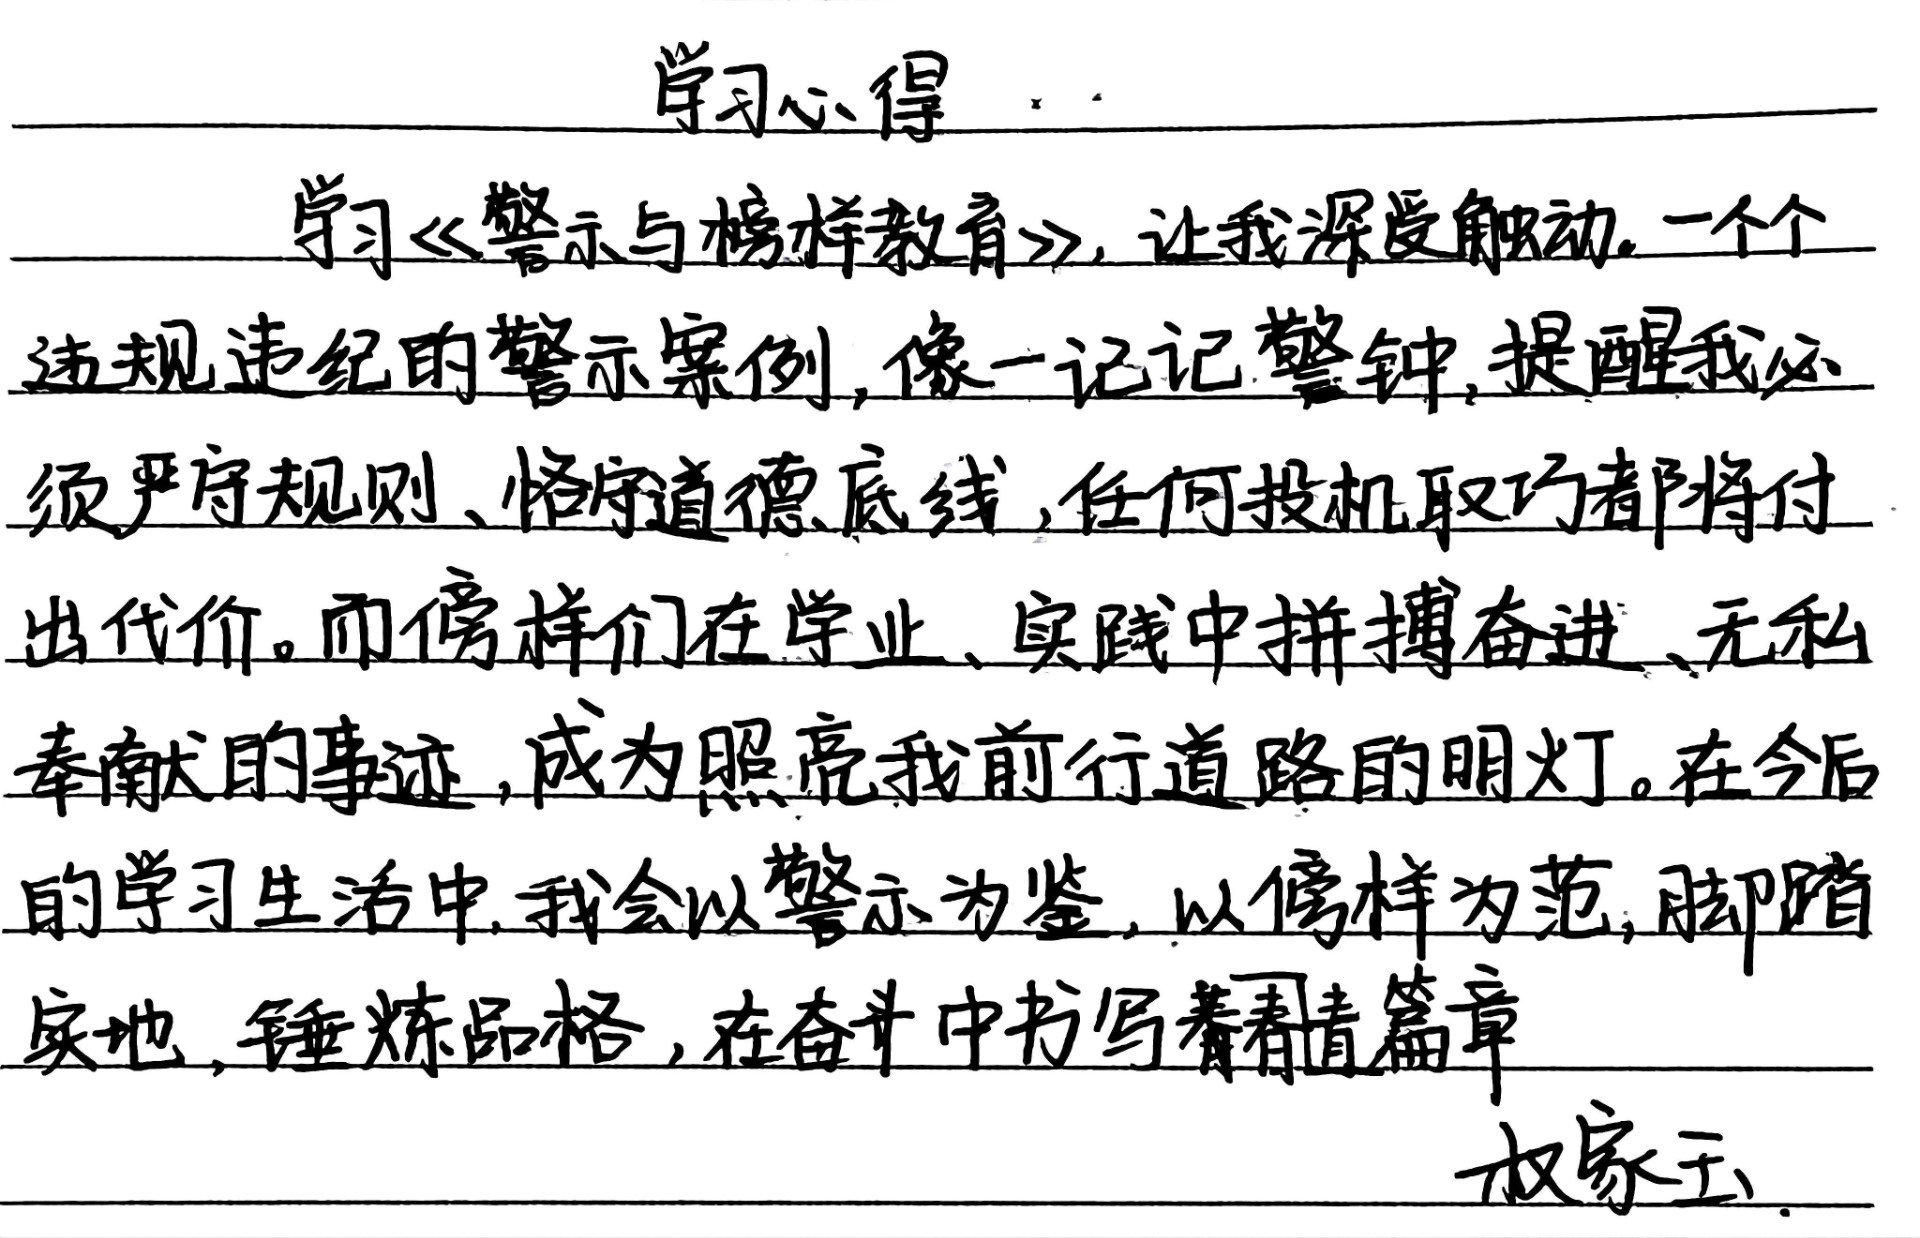 学习心得
学习《警示与榜样教育》,让我深受触动。一个个
违规违纪的警示案例,像一记记警钟,提醒我必
须严守规则、恪守道德底线,任何投机取巧都将付
出代价。而傍样们在学业、实践中拼搏奋进、无私
奉献的事迹,成为照亮我前行道路的明灯。在今后
的学习生活中,我会以警示为鉴,以傍样为范,脚踏
实地,锤炼品格,在奋斗中书写青篇章
权家玉